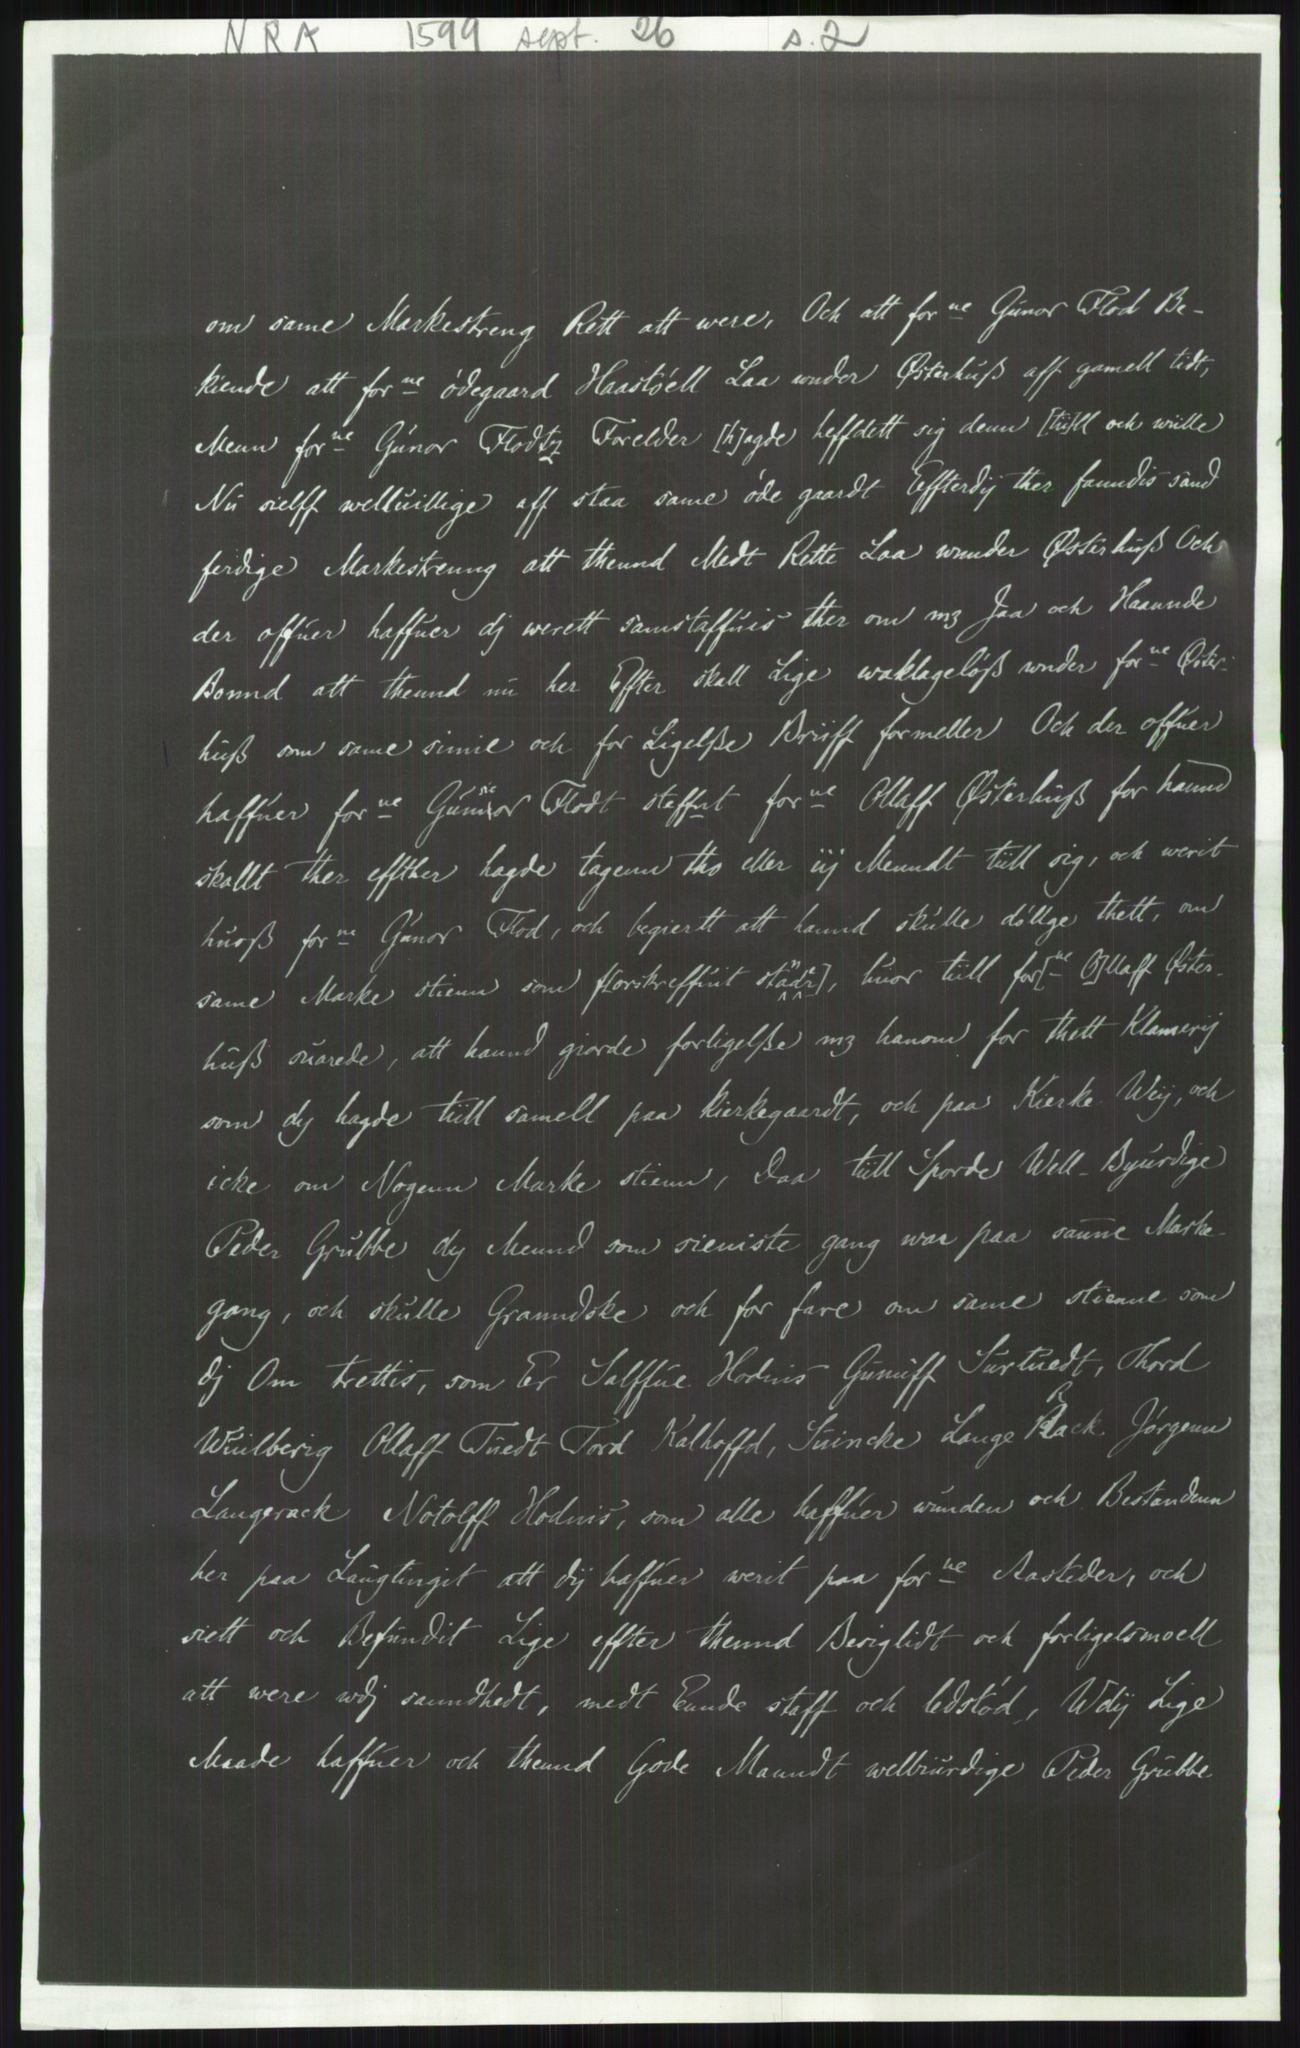 NRA 1599 sept. 26 s.2
om same Markestreng Rett att were, Och att for ne Gunor Flod Be-
kiende att for ne ödegaard Haastöell Laa wnder Østerhuß aff gamell tidt,
Menn for ne Gunor Flodtz Forelder [h]agde heffdett sig denn [tii]ll och wiille
Nu sielff welluillige aff staa same öde gaardt Effterdij ther fanndis sand
ferdige Markestrenng att thennd Medt Rette Laa wunder Østerhuß Och
der offuer haffuer dj werett samstaffuis ther om mz Jaa och Haannde
Bonnd att thennd nu her Effter skall Lige waklagelöß wnder for ne Øster-
huß som same simie och for Ligelße Briiff formeller Och der offuer
haffuer for ne Gunnor Flodt steffnt for ne Ollaff Østerhuß for hannd
skallt ther effther hagde tagenn tho eller iij Menndt tiill sig, och werit
huoß for ne Gunor Flod, och begiertt att hannd skulle döllge thett, om
same Marke stienn som f[orskreffuit standr], huor tiill for[ne O]llaff Øster-
huß suarede, att hannd giorde forligelße mz hanom for thett Klamerij
som dy hagde tiill samell paa kierkegaardt, och paa Kierke Weij, och
icke om Nogenn Marke stienn, Daa tiill Sporde Well-Byurdige
Peder Grubbe dy Mennd som sieniste gang war paa same Marke-
gang, och skulle Granndske och for fare om same stienne som
dj Om trettis, som Er Salffue Hodnis Gunniff Surtuedt, Thord
Wiulberig Ollaff Tuedt Tord Kalhoffd, Suincke Lange Rack Jörgenn
Langerack Notolff Hodnis, som alle haffuer wunden och Bestandenn
her paa Laugtingit att dij haffuer werit paa for ne Aasteder, och
siett och Befundit Lige effter thennd Besiglidt och forligelsmoell
att were wdj sanndhedt, medt Eunde staff och ledstöd, Wdij Lige
Maade haffuer och thennd Gode Manndt welbiurdige Peder Grubbe